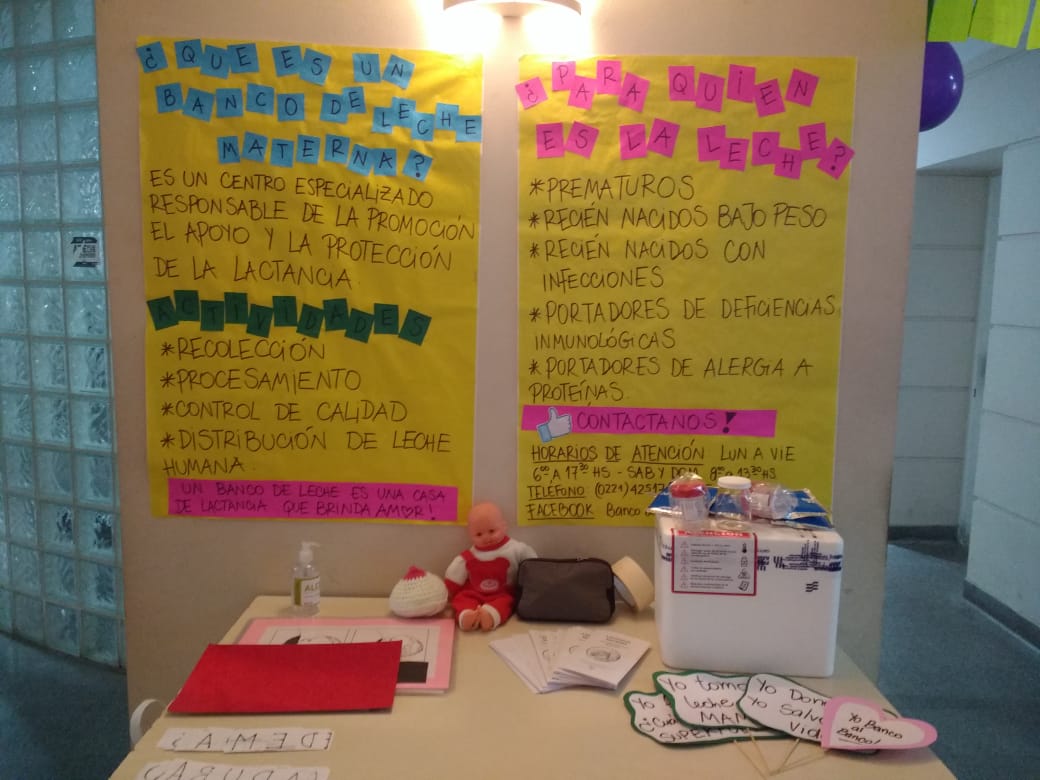 ¿QUE ES UN
BANCO DE LECHE
MATERNA?
ES UN CENTRO ESPECIALIZADO
RESPONSABLE DE LA PROMOCIÓN
EL APOYO Y LA PROTECCIÓN
DE LA LACTANCIA.
ACTIVIDADES
*RECOLECCIÓN
*PROCESAMIENTO
*CONTROL DE CALIDAD
*DISTRIBUCIÓN DE LECHE
HUMANA.
UN BANCO DE LECHE ES UNA CASA
DE LACTANCIA QUE BRINDA AMOR!
¿PARA QUIEN
ES LA LECHE?
*PREMATUROS
*RECIÉN NACIDOS BAJO PESO
*RECIÉN NACIDOS CON
INFECCIONES
*PORTADORES DE DEFICIENCIAS
INMUNOLÓGICAS
*PORTADORES DE ALERGIA A
PROTEÍNAS.
CONTACTANOS!
HORARIOS DE ATENCIÓN LUN A VIE
6:00 A 17:30 HS - SAB Y DOM 8:00 a 13:30 HS
TELÉFONO (0221) 42517
FACEBOOK Banco
AL
Yo
Yo tomo
leche
MAM
SUPER
Yo Don
Yo Salv
Vid
Yo Banco
al
Banco!